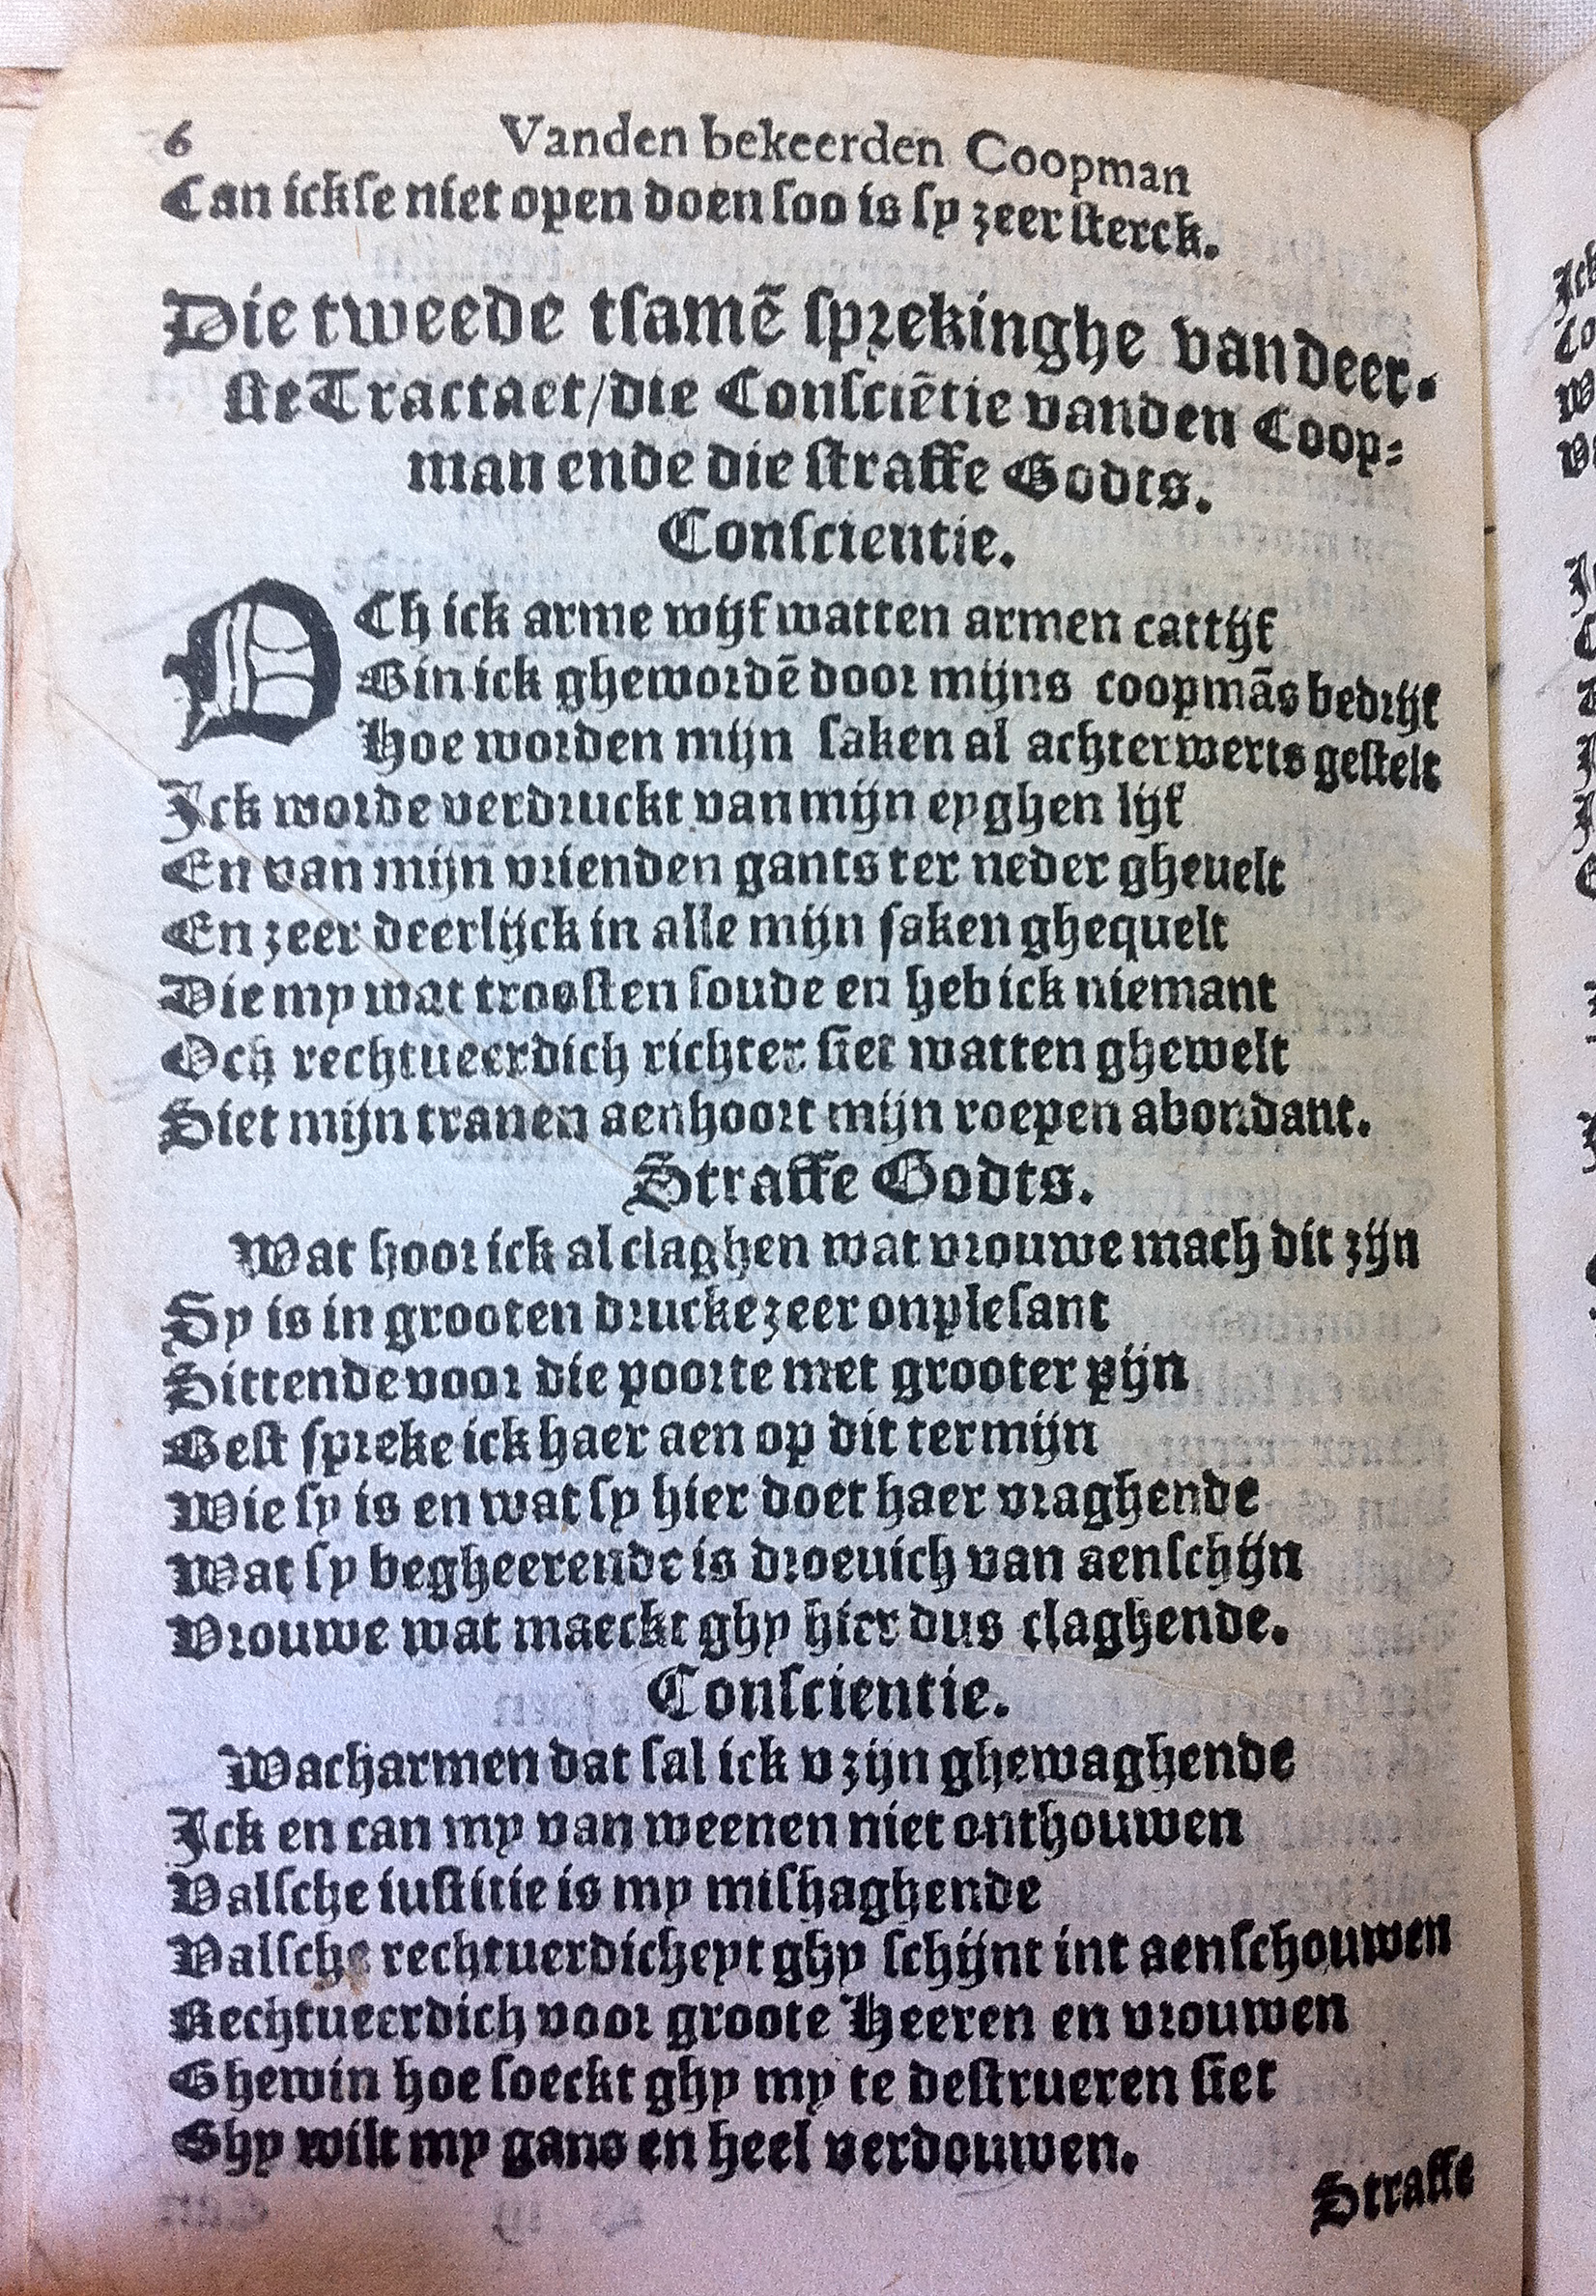 6 Vanden bekeerden Coopman
Can ickse niet open doen soo is sy zeer sterck.
Die tweede tsamē sprekinghe vandeer-
ste Tractaet/die Consciētie vanden Coop-
man ende die straffe Godts.
Conscientie.
OCh ick arme wijf watten armen cattijf
Bin ick ghewordē door mijns coopmās bedrijf
Hoe worden mijn saken al achterwerts gestelt
Ick worde verdruckt van mijn eyghen lijf
En van mijn vrienden gants ter neder gheuelt
En zeer deerlijck in alle mijn saken ghequelt
Die my wat troosten soude en heb ick niemant
Och rechtueerdich richter siet watten ghewelt
Siet mijn tranen aenhoort mijn roepen abondant.
Straffe Godts.
Wat hoor ick al claghen wat vrouwe mach dit zijn
Sy is in grooten drucke zeer onplesant
Sittende voor die poorte met grooter pijn
Best spreke ick haer aen op dit termijn
Wie sy is en wat sy hier doet haer vraghende
Wat sy begheerende is droeuich van aenschijn
Vrouwe wat maeckt ghy hier dus claghende.
Conscientie.
Wacharmen dat sal ick v zijn ghewaghende
Ick en can my van weenen niet onthouwen
Valsche iustitie is my mishaghende
Valsche rechtuerdicheyt ghy schijnt int aenschouwen
Rechtueerdich voor groote Heeren en vrouwen
Ghewin hoe soeckt ghy my te destrueren siet
Ghy wilt my gans en heel verdouwen.
Straffe